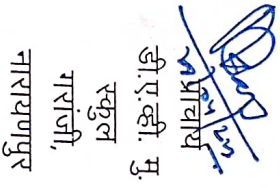 प्राचार्य
डी.ए.व्ही. मु.
स्कूल
गरांजी,
नारायणपुर